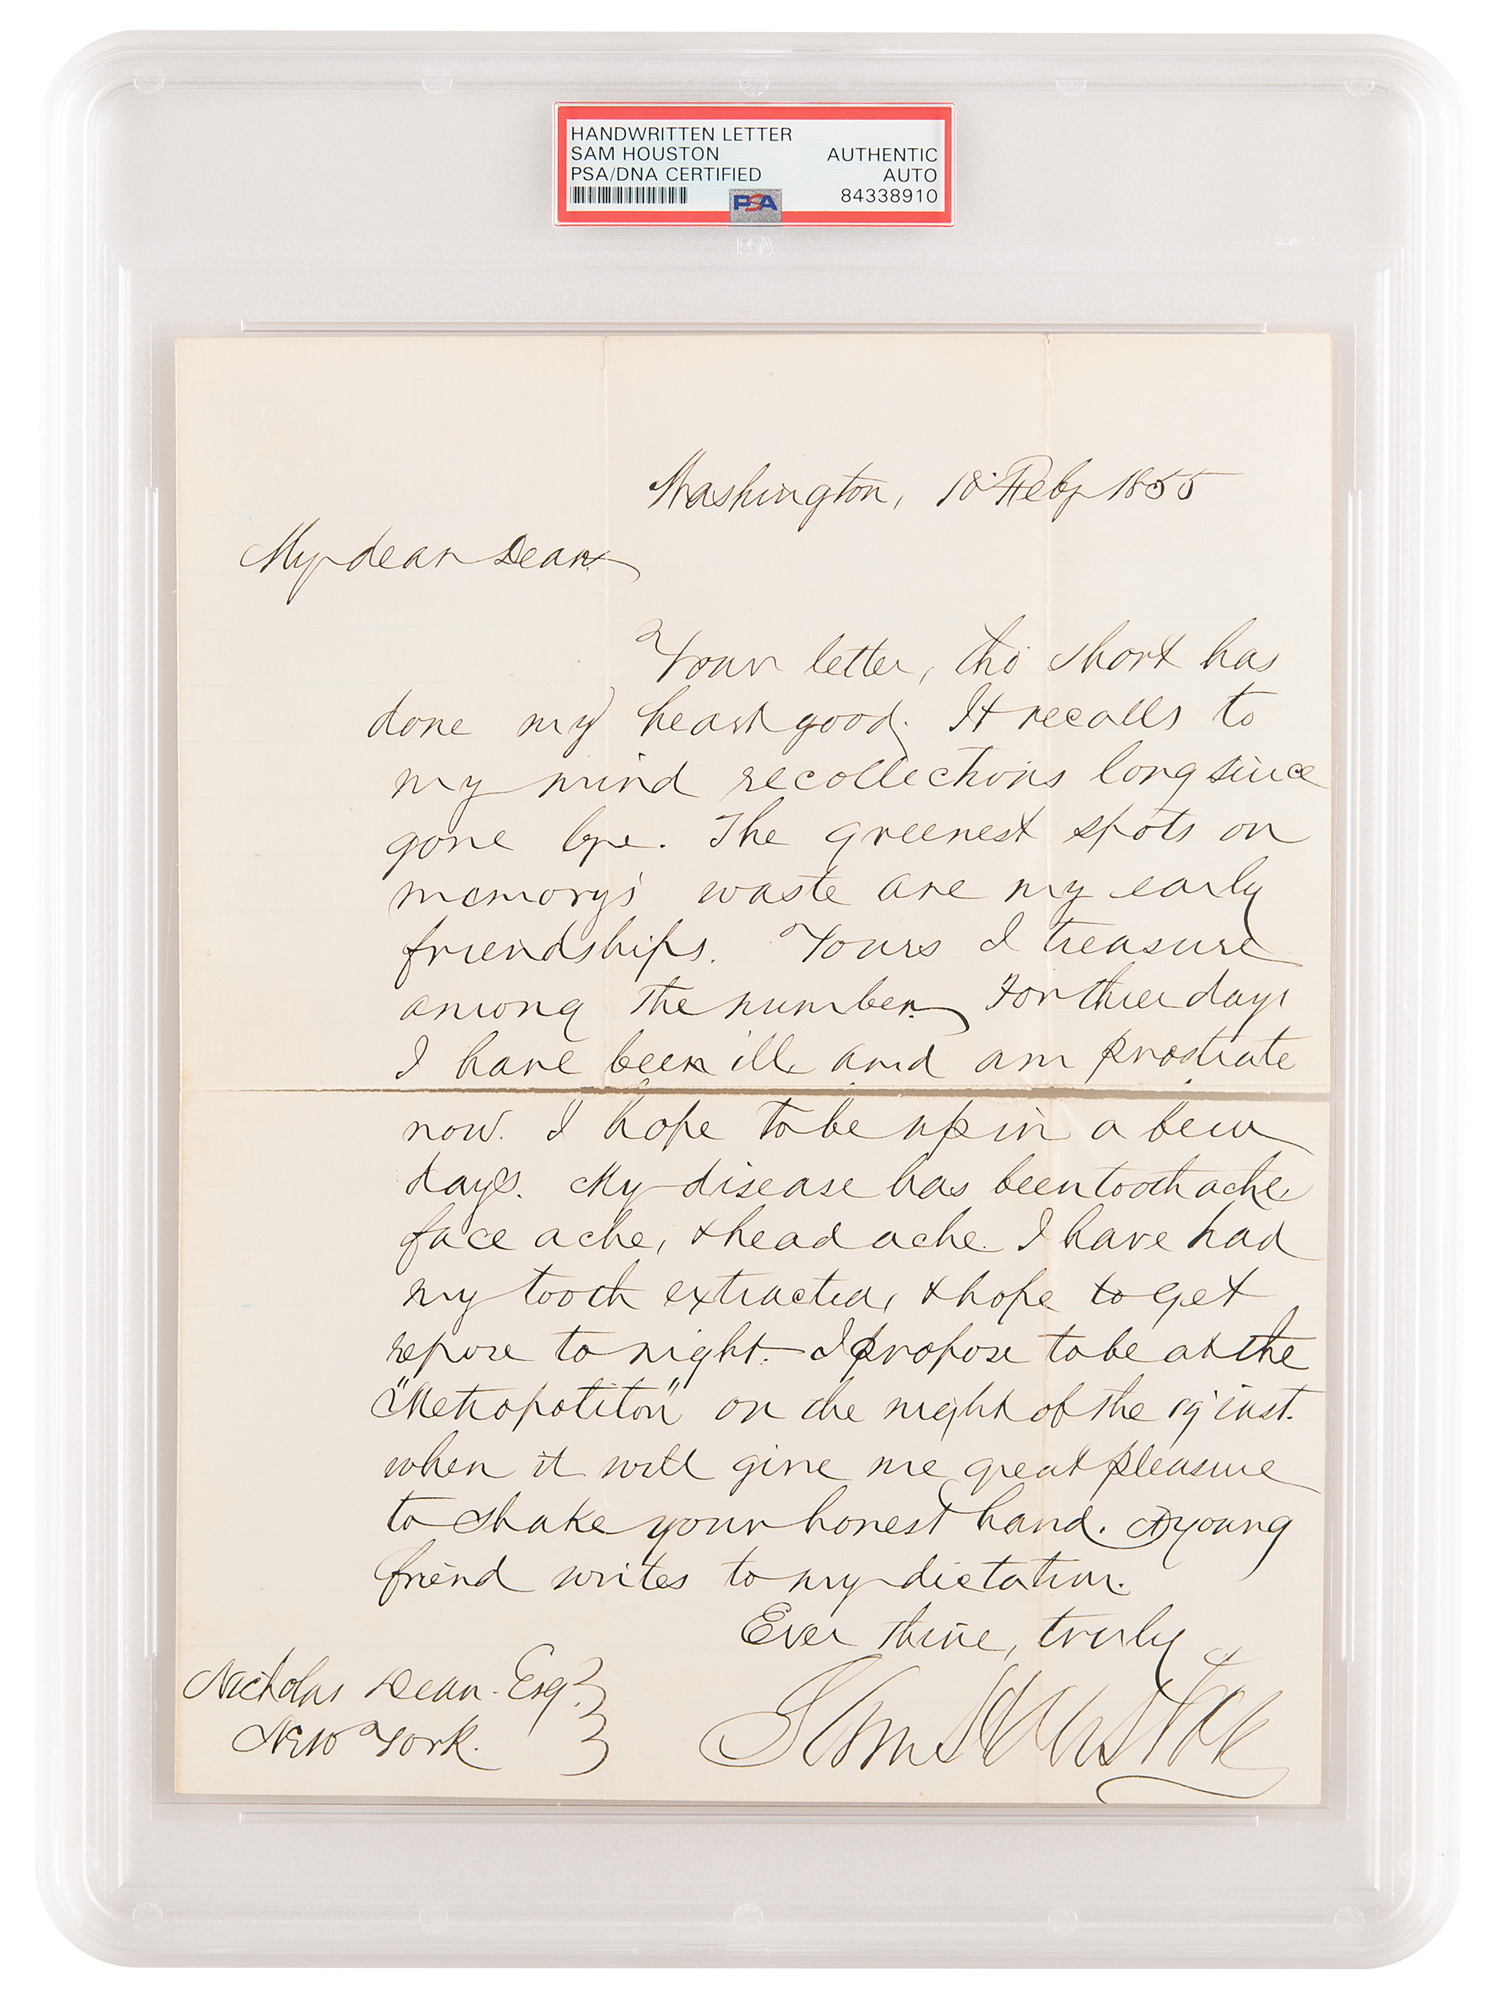 HANDWRITTEN LETTER
SAM HOUSTON
PSA/DNA CERTIFIED
AUTHENTIC
AUTO
84338910
PSA
Washington, 18 Feby 1855
My dear Dean
Your letter, tho' short has
done my heart good. It recalls to
my mind recollections long since
gone bye. The greenest spots on
memory's waste are my early
friendships. Yours I treasure
among the number. For three days
I have been ill, and am prostrate
now. I hope to be up in a few
days. My disease has been tooth ache,
face ache, & head ache. I have had
my tooth extracted, & hope to get
repose to night. I propose to be at the
"Metropoliton" on the night of the 19' inst.
when it will give me great pleasure
to shake your honest hand. A young
friend writes to my dictation.
Ever thine, truly
Sam Houston
Nicholas Dean Esq.
New York.